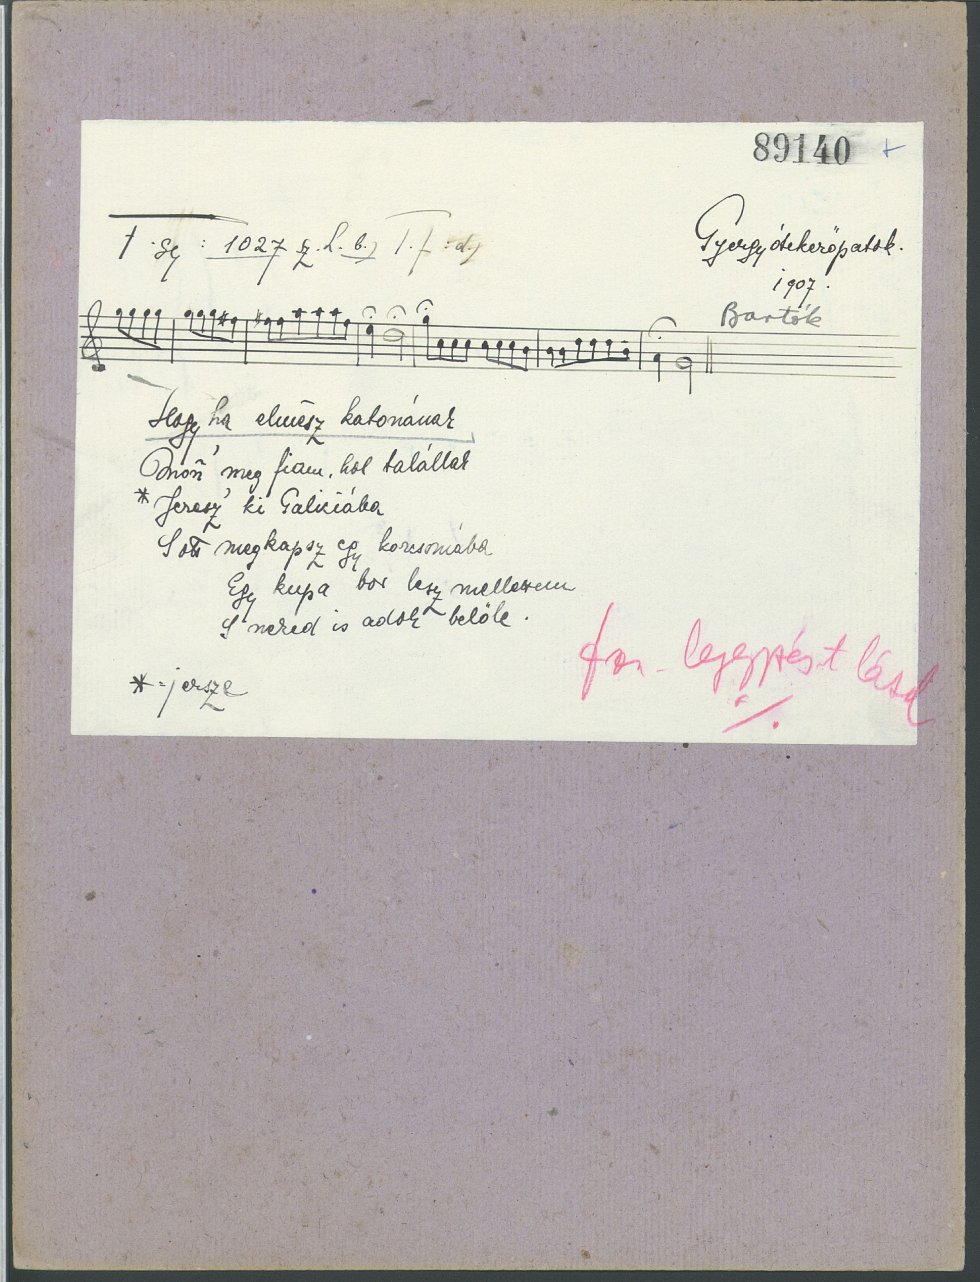 89140 +
Gyergyótekerőpatak.
1907.
Bartók
F. gy : 1027 z. h. b.) T. f : d.)
Hogy ha elmész katonának
Mon' meg fiam, hol talállak
* Jeresz' ki Galiciába
S ott megkapsz egy korcsomába
Egy kupa bor lesz mellettem
S neked is adok belőle.
* = jersze
fon. lejegyzést lásd
·/.